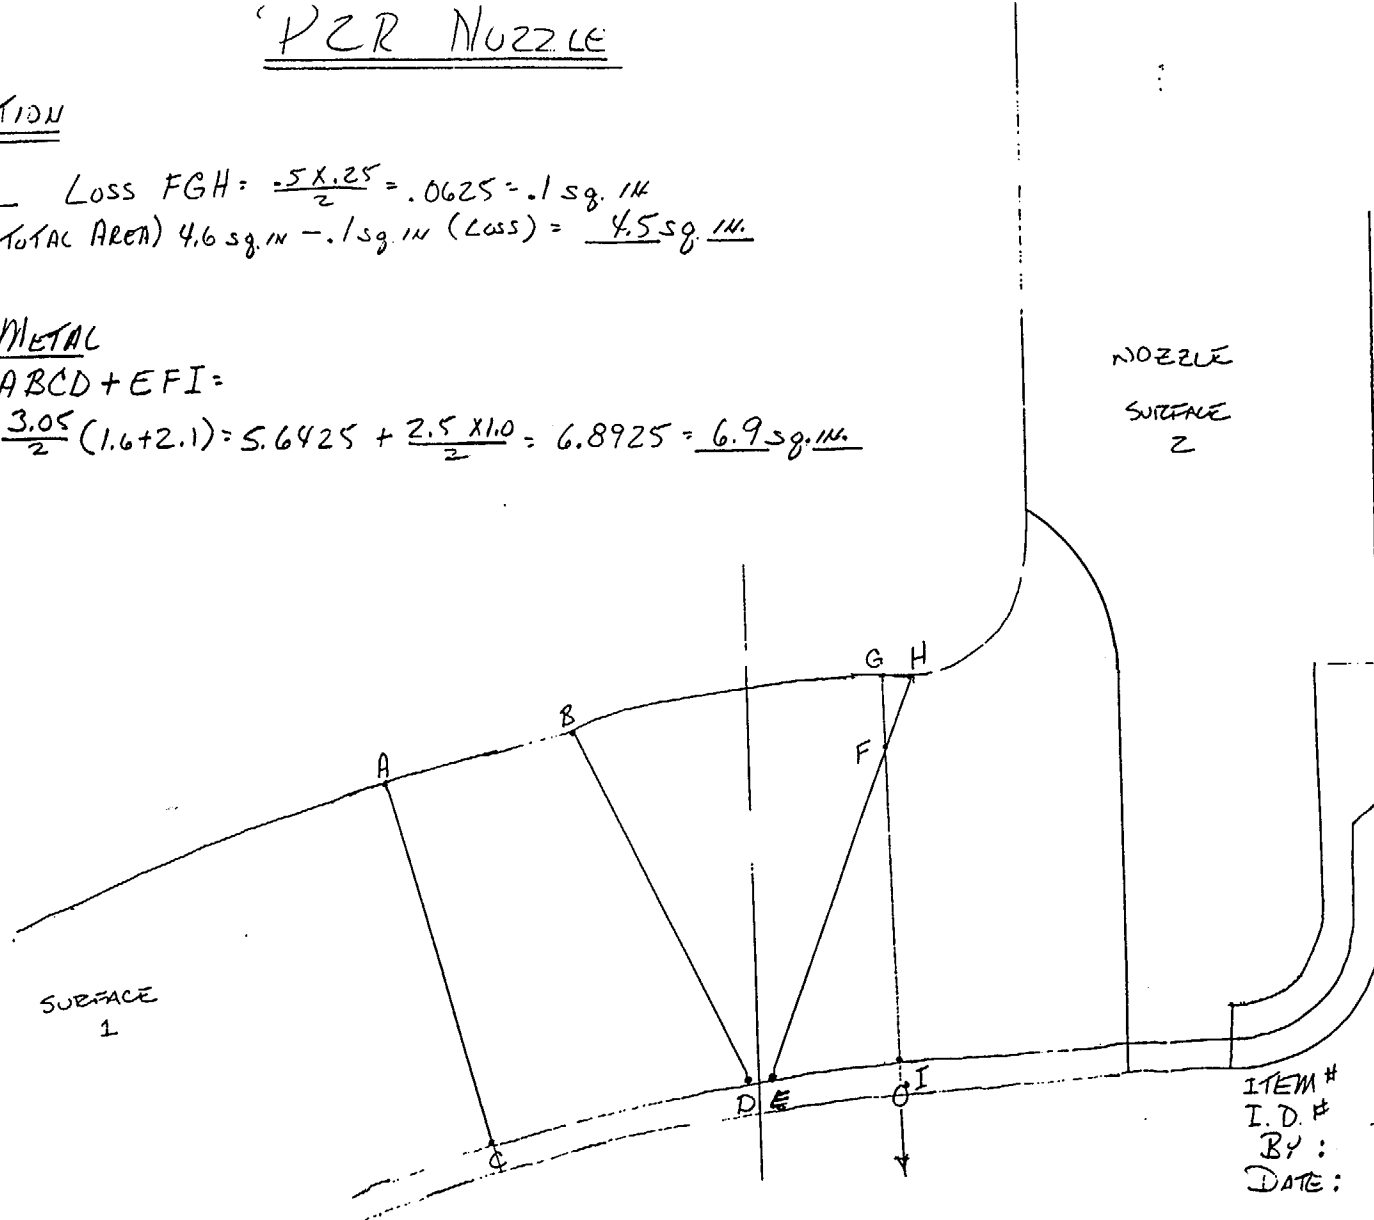 PZR NOZZLE
TION
LOSS FGH = .5 X .25 / 2 = .0625 = .1 sq. IN
TOTAL AREA) 4.6 sq. IN - .1 sq. IN (LOSS) = 4.5 sq. IN.
METAL
ABCD + EFI =
3.05 / 2 (1.6+2.1) = 5.6425 + 2.5 X 1.0 / 2 = 6.8925 = 6.9 sq. IN.
NOZZLE
SURFACE
2
G H
B
F
A
SURFACE
1
D E
I
O
C
ITEM #
I.D. #
BY :
DATE :